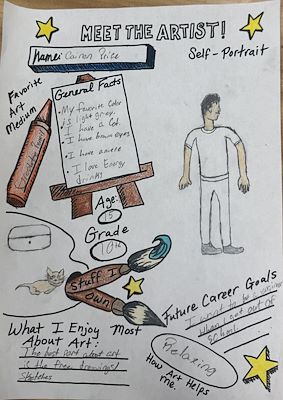 MEET THE ARTIST!
Name: Price
Self-Portrait
Favorite
Art
Medium
General Facts
• My favorite color
is light grey.
• I have a cat.
• I have brown eyes
• I have a niece
• I love Energy
drinks
Age:
15
Grade
10th
Stuff I
Own
What I Enjoy Most
About Art:
The best part about art
is the free drawings/
sketches
Future Career Goals
I want to be a
when I get out of
school.
Relaxing
How Art Helps
me.